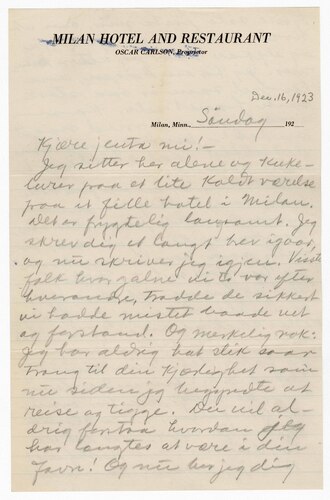 MILAN HOTEL AND RESTAURANT
OSCAR CARLSON, Proprietor
Dec. 16, 1923
Milan, Minn., Søndag 192
Kjære jenta mi! –
Jeg sitter her alene og kuke-
lurer paa et lite koldt værelse
paa et fille hotel i Milan.
Det er frygtelig langsomt. Jeg
skrev dig et langt brev igaar,
og nu skriver jeg igjen. Visste
folk hvor galne vi to var efter
hverandre, trodde de sikkert
vi hadde mistet baade vet
og forstand. Og merkelig nok:
Jeg har aldrig hat slik saar
trang til din kjærlighet som
nu siden jeg begyndte at
reise og tigge. Du vil al-
drig forstaa hvordan jeg
har længtes at være i din
favn! Og nu ber jeg dig